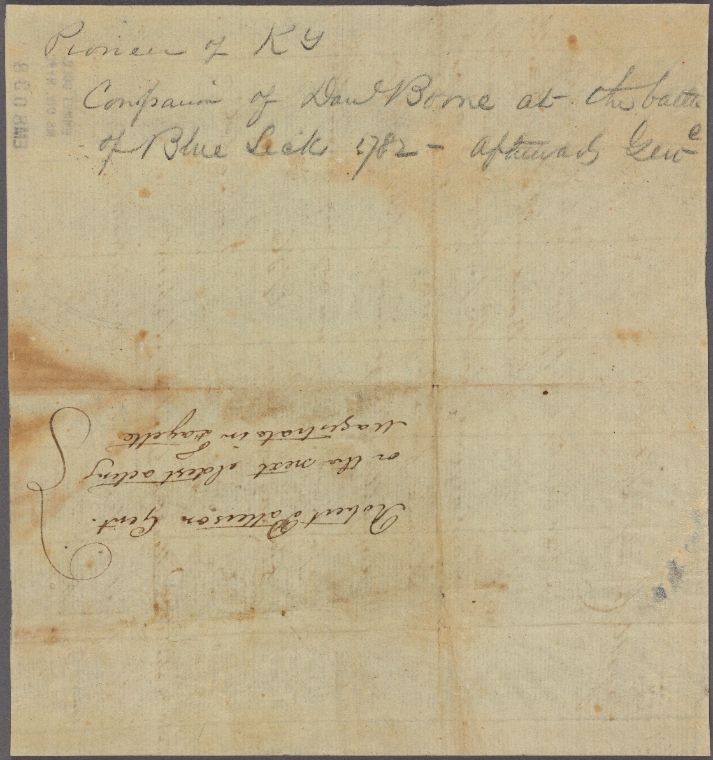 Pioneer of KY
Companion of Danl Boone at the battle
of Blue Lick 1782 - afterwards Genl
Robert Patterson Gent.
or the next eldest acting
Magistrate in Fayette